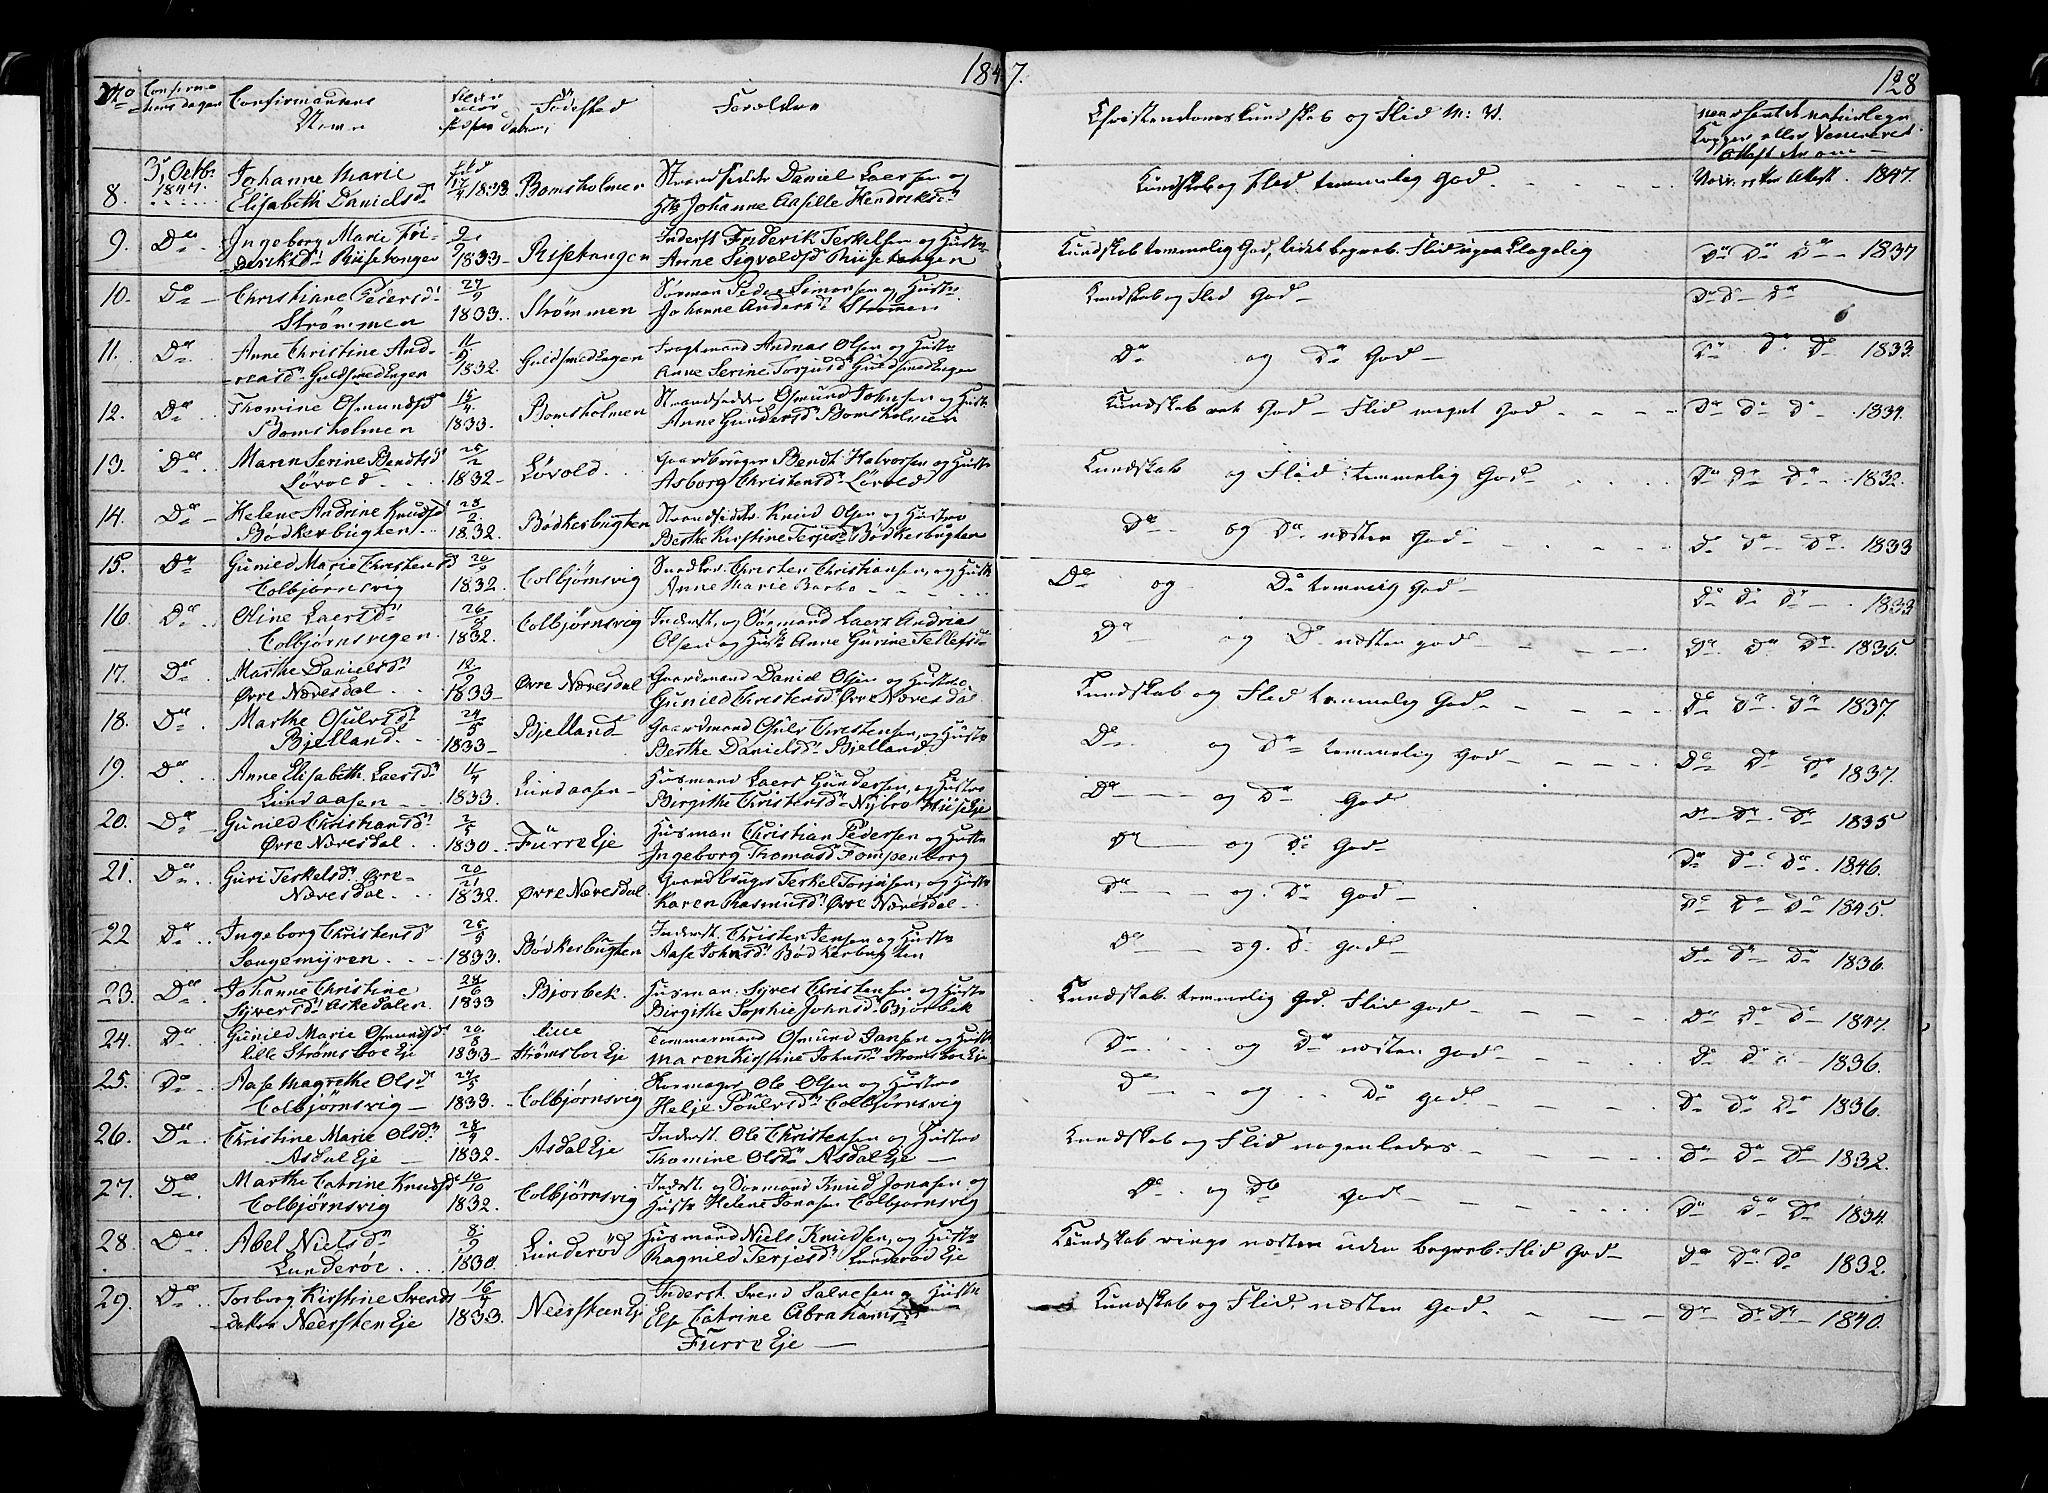 1847.
128
No Confirmationsdagen Confirmandens Navn Fødested Forældre
Christendomskundskab og Flid M: V.
8. 3, Octb: 1847. Johanne Marie Elisabeth Danielsd. 1833 Bomsholmen Strandsidder Daniel Laersen og
Johanne Hendriksd.
Kundskab og Flid temmelig God. 1847.
9. Do Ingeborg Marie Fri-
deriksd. Riisetangen 1833 Risetangen Inderst Friderik Terkelsen og Hustru
Anne Sigvaldsd. Riisetangen
Kundskab temmelig God, lidet begreb. Flid upaaklagelig Do Do Do 1837
10. Do Christianne Pedersd.
Strømmen 27/9 1833. Strømmen Søman Peder Simonsen og Hustru
Johanne Andersd. Strømmen
Kundskab og Flid God Do Do Do 6
11. Do Anne Christine And-
reasd. Guldsmedengen 1832. Guldsmedengen Fragtmand Andreas Olsen og Hustru
Anne Serine Guldsmedengen
Do og Do God Do Do Do 1833.
12. Do Thomine Osmundsd.
Bomsholmen 15/4 1833. Bomsholmen Strandsidder Osmund Johnsen og Hustr.
Anne Gundersd. Bomsholmen
Kundskab ret God Flid meget God Do Do Do 1834.
13. Do Maren Serine Bendtsd.
Løvold 25/2 1832 Løvold Gaardbruger Bendt Halvorsen og Hustr
Asborg Christensd. Løvold
Kundskab og Flid temmelig God Do Do Do 1832.
14. Do Helene Andrine Knudsd.
Bødkerbugten 28/2 1832. Bødkerbugten Strandsidder Knud Olsen og Hustro
Berthe Kirstine Terjesd. Bødkerbugten
Do og Do næsten God Do Do Do 1833
15. Do Gunild Marie Christensd.
Colbjørnsvig 20/9 1832. Colbjørnsvig Snedker Christen Christiansen, og Hustr.
Anne Marie Barbo
Do og Do temmelig God Do Do Do 1833
16. Do Oline Laersd.
Colbjørnsvigen 26/8 1832. Colbjørnsvig Inderst, og Sømand Laers Andrias
Olsen og Hust. Anne Gurine Tellefsd.
Do og Do næsten god Do Do Do 1835.
17. Do Marthe Danielsd.
Øvre Næresdal 12/2 1833 Øvre Næresdal Gaardmand Daniel Olsen og Hustroe
Gunild Christensd. Øvre Næresdal
Kundskab og Flid temmelig God Do Do Do 1837.
18. Do Marthe Osulvsd.
Bjelland 24/5 1833 Bjelland Gaardmand Osulv Christensen, og Hustr
Berthe Danielsd. Bjelland
Do og Do temmelig God Do Do Do 1837.
19. Do Anne Elisabeth Laersd.
Lindaasen 11/4 1833. Lindaasen Husmand Laers Gundersen, og Hustro
Birgithe Christensd. Nybro Eje
Do og Do God Do Do Do 1835
20. Do Gunild Christiansd.
Øvre Næresdal 2/5 1830 Furre Eje Husman Christian Pedersen og Hustru
Ingeborg Thomasd. Fompenborg
Do og Do God Do Do Do 1846.
21. Do Guri Terkelsd. Øvre
Næresdal 1832. Øvre Næresdal Gaardbruger Terkel Torjusen, og Hustr
Karen Rasmusd. Øvre Næresdal
Do og Do God Do Do Do 1845.
22 Do Ingeborg Christensd.
Songemyren 25/5 1833. Bødkerbugten Inderst. Christen Jensen og Hustro
Aase Johnsd. Bødkerbugten
Do og Do god Do Do Do 1836.
23. Do Johanne Christine
Syversd. Askedalen 28/6 1833 Bjorbek. Husman. Syver Christensen og Hustro
Birgithe Sophie Johnsd. Bjorbek
Kundskab temmelig God. Flid God Do Do Do 1847.
24. Do Gunild Marie Osmundsd.
lille Strømsboe Eje 20/8 1833 lille Strømsboe Eje Tømmermand Osmund Jansen og Hustro
Maren Kirstine Johnsd. Strømsboe Eje
Do og Do næsten god Do Do 1836.
25. Do Aase Magrethe Olsd.
Colbjørnsvig 24/5 1833. Colbjørnsvig Skomager Ole Olsen og Hustro
Helje Poulsd. Colbjørnsvig
Do og Do god Do Do Do 1836.
26. Do Christine Marie Olsd.
Asdal Eje 28/9 1832. Asdal Eje Inderst. Ole Christensen og Hustro
Thomine Olsd. Asdal Eje
Kundskab og Flid nogenledes Do Do Do 1832.
27. Do Marthe Catrine Knudsd.
Colbjørnsvig 10/10 1832. Colbjørnsvig Inderst. og Sømand Knud Jonasen og
Hustr Helene Jonasen Colbjørnsvig
Do og Do God Do Do Do 1834.
28. Do Abel Nielsd.
Lunderøe 8/9 1830. Lunderød Husmand Niels Knudsen, og Hustr
Ragnild Terjesd. Lunderød Eje
Kundskab ringe næsten uden begreb. Flid God Do Do Do 1832.
29. Do Torborg Kirstine Svends
datter Neersteen Eje 16/4 1833. Neersteen Eje Inderst. Svend Salvesen og Hustr
Else Catrine Abrahamsd.
Furre Eje
Kundskab og Flid næsten God Do Do Do 1840.